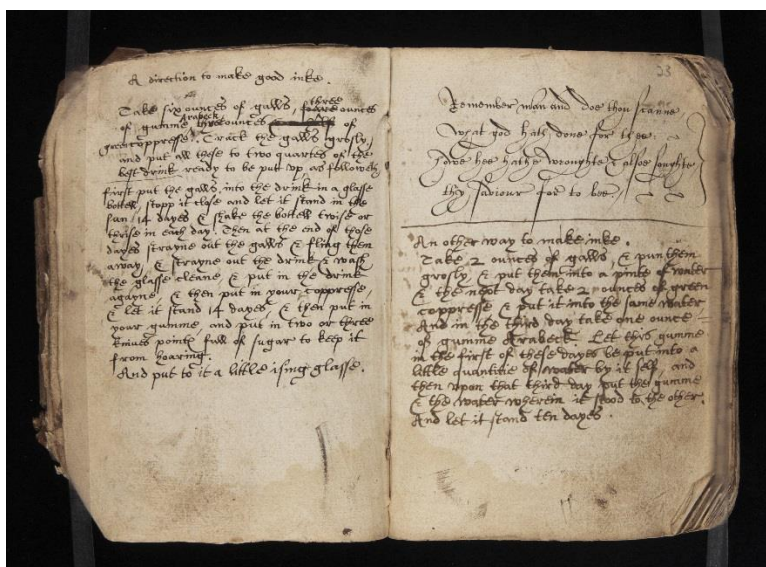 A direction to make good inke.
Take six ounces of galls, three ounces
of gumme Arabeck, three ounces of
greencoppresse. Crack the galls grosly,
and put all these to two quartes of the
best drink ready to be put vp as followeth
first put the galls, into the drink in a glasse
bottell, stopp it close and let it stand in the
sun 14 dayes & shake the bottell twise or
thrise in each day. Then at the end of those
dayes strayne out the galls & fling them
away, & strayne out the drink & wash
the glasse cleane, & put in the drink
agayne, & then put in your coppresse,
& let it stand 14 dayes, & then put in
your gumme, and put in two or three
knives points full of sugar to keep it
from hoaring.
And put to it a little ising glasse.
23
Remember man and doe thou scanne
What god hath done for thee.
How hee hathe wroughte & alsoe soughte
thy saviour for to bee.
An other way to make inke.
Take 2 ounces of galls, & pun them
grosly, & put them into a pinte of water
& the next day take 2 ounces of green
coppresse & put it into the same water
And in the third day take one ounce
of gumme Arabeck. Let this gumme
in the first of these dayes be put into a
little quantitie of water by it self, and
then vpon that third day put the gumme
& the water wherein it stood to the other.
And let it stand ten dayes.